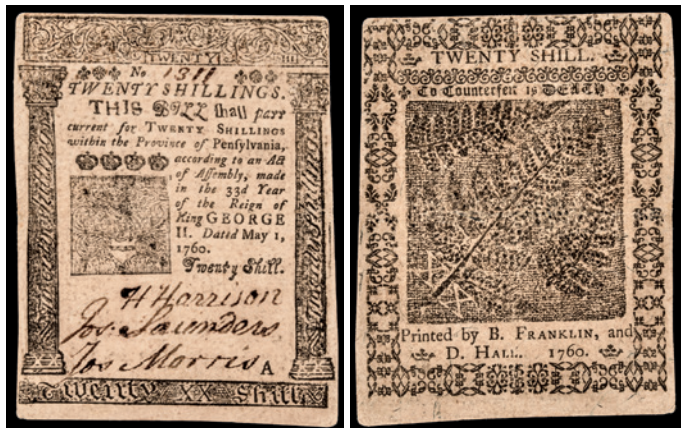 TWENTY
No 1311
TWENTY SHILLINGS.
THIS BILL ſhall paſs
current for TWENTY SHILLINGS
within the Province of Penſylvania,
according to an Act
of Aſſembly, made
in the 33d Year
of the Reign of
King GEORGE
II. Dated May 1,
1760.
Twenty Shill.
H Harrison
Jos. Saunders
Jos Morris A
XX XX
Twenty XX Shill X
TWENTY SHILL.
To Counterfeit is DEATH.
Printed by B. FRANKLIN, and
D. HALL. 1760.